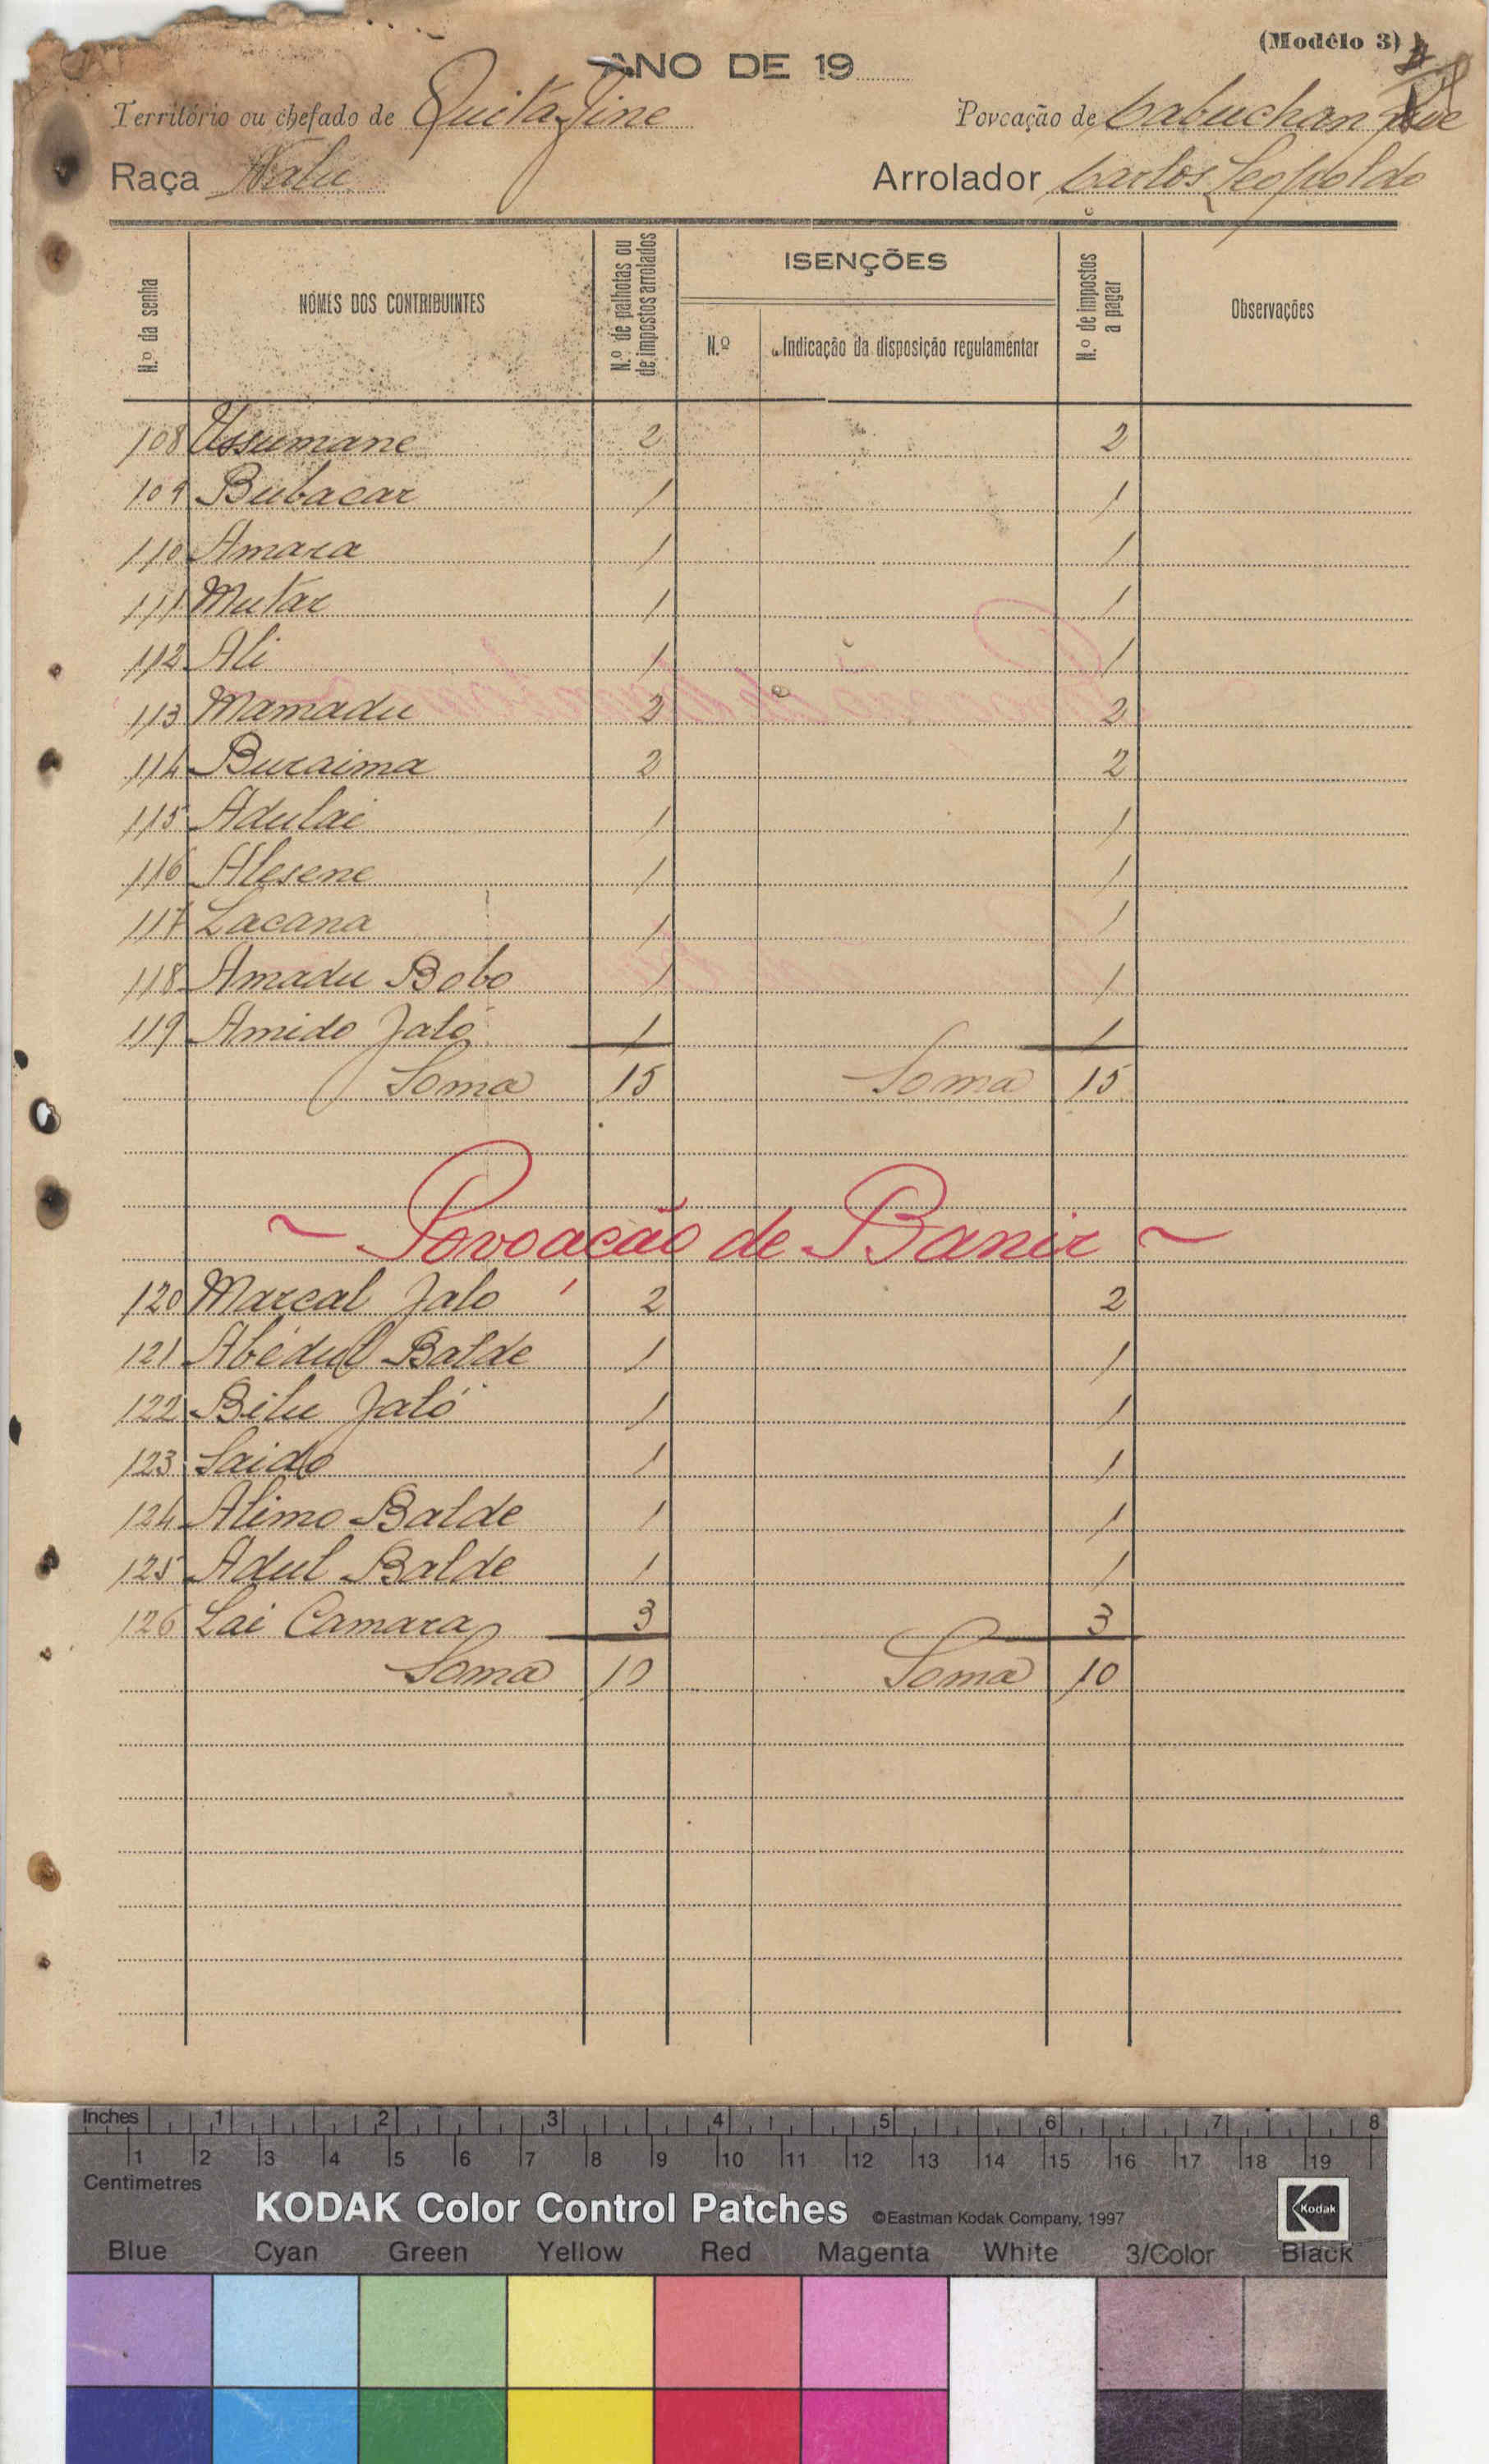 (Modêlo 3)
ANO DE 19
Território ou chefado de Quitafine Povoação de Cabuchanque
Raça Nalu Arrolador Carlos Leopoldo
N.º da senha NOMES DOS CONTRIBUINTES N.º de palhotas ou de impostos arrolados ISENÇÕES N.º de impostos a pagar Observações
N.º Indicação da disposição regulamentar
108 Ussumane 2 2
109 Bubacar 1 1
110 Amara 1 1
111 Mutar 1 1
112 Ali 1 1
113 Mamadu 2 2
114 Buraima 2 2
115 Adulai 1 1
116 Alesene 1 1
117 Lacana 1 1
118 Amadu Bobo 1 1
119 Amido Jaló 1 1
Soma 15 Soma 15
~ Povoação de Banir ~
120 Marcal Jalo 2 2
121 Abédul Balde 1 1
122 Bilu Jaló 1 1
123 Saido 1 1
124 Alimo Balde 1 1
125 Adul Balde 1 1
126 Lai Camara 3 3
Soma 10 Soma 10
Inches 1 2 3 4 5 6 7 8
1 2 3 4 5 6 7 8 9 10 11 12 13 14 15 16 17 18 19
Centimetres
KODAK Color Control Patches ©Eastman Kodak Company, 1997 Kodak
Blue Cyan Green Yellow Red Magenta White 3/Color Black